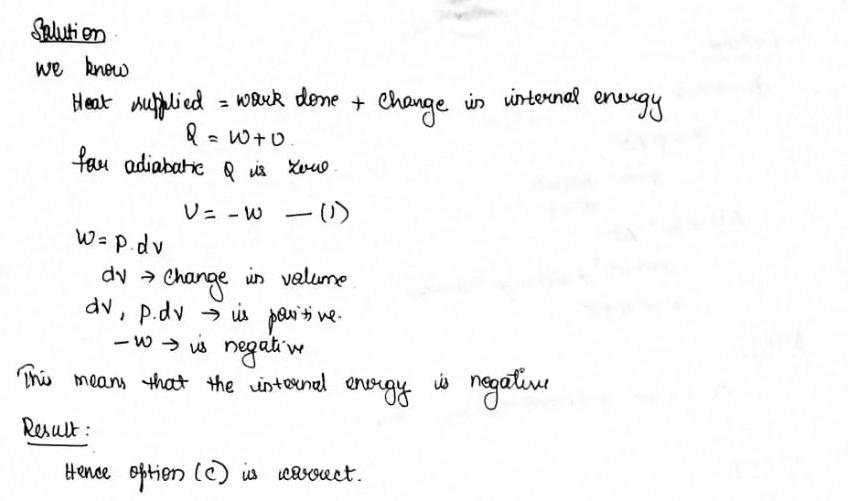 Solution.
we know
Heat supplied = work done + change in internal energy
Q = W+U.
for adiabatic Q is zero.
U = -W — (1)
W = P.dv
dv → change in volume
dv, p.dv → is positive.
-W → is negative
This means that the internal energy is negative
Result:
Hence option (C) is correct.